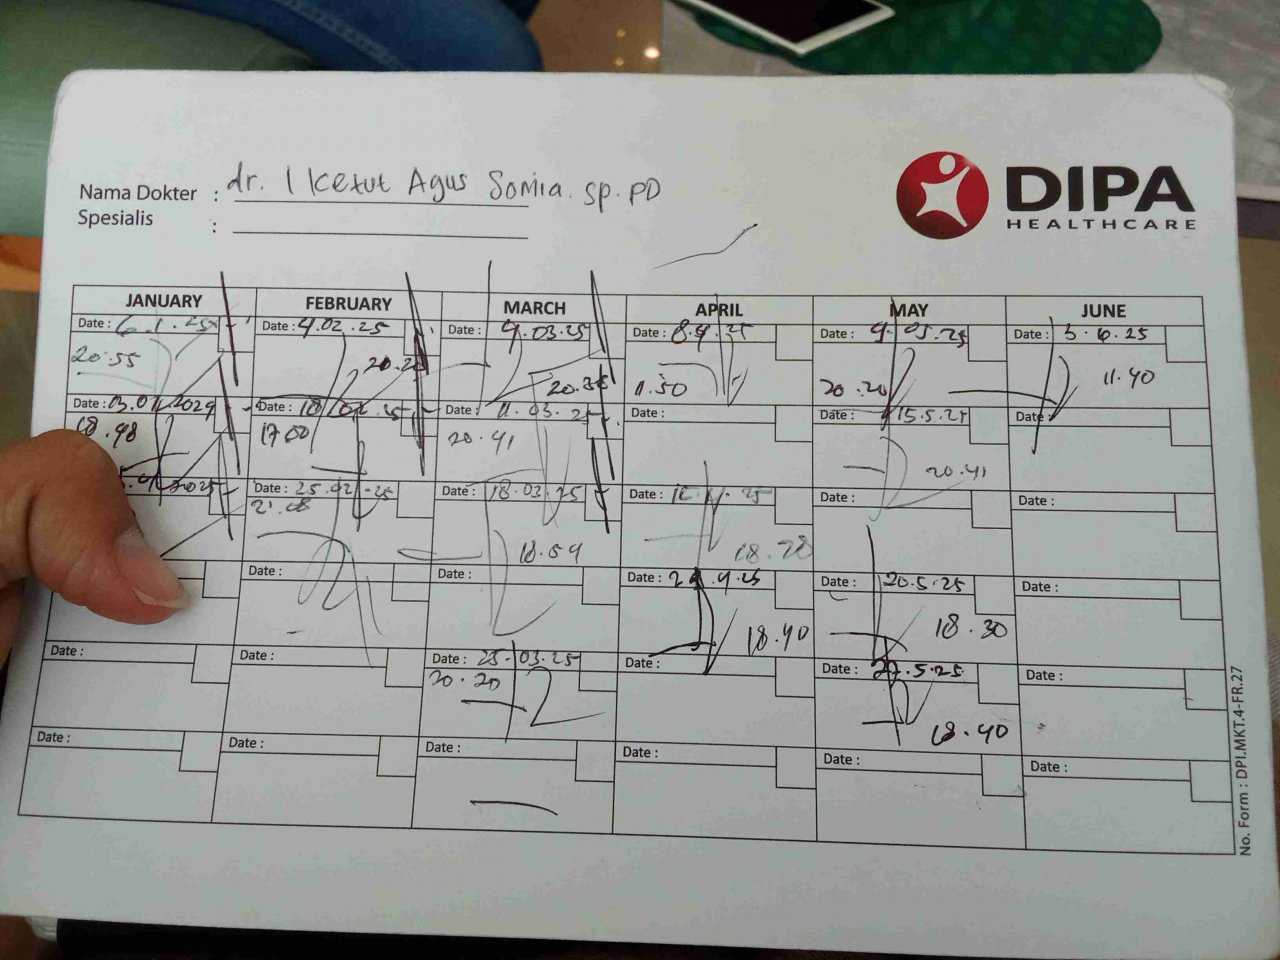 DIPA
HEALTHCARE
Nama Dokter : dr. I Ketut Agus Somia. Sp. PD
Spesialis :
JANUARY FEBRUARY MARCH APRIL MAY JUNE
Date : 6.1.25 Date : 4.02.25 Date : 4.03.25 Date : 8.4.25 Date : 9.05.25 Date : 3.6.25
20.55 20.20 20.35 11.50 20.20 11.40
Date : Date : 18.02.25 Date : 11.03.25 Date : Date : 15.5.25 Date :
18.48 17.00 20.41 20.41
2025 Date : 25.02.25 Date : 18.03.25 Date : Date : Date :
18.59 18.28
Date : Date : Date : 4.25 Date : 20.5.25 Date :
18.40 18.30
Date : Date : Date : 25.03.25 Date : Date : 27.5.25 Date :
20.20 18.40
Date : Date : Date : Date : Date : Date :
No. Form : DPI.MKT.4-FR.27